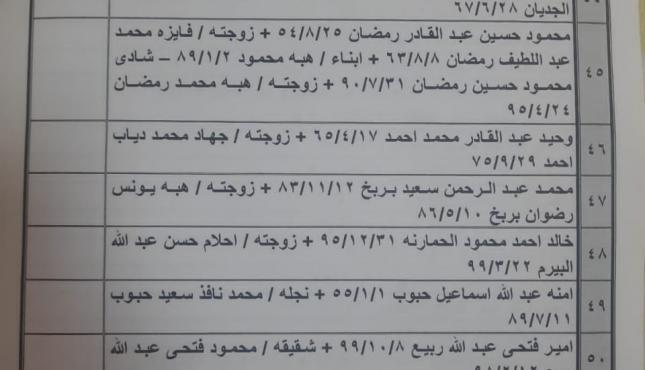 الجديان ٦٧/٦/٢٨
محمود حسين عبد القادر رمضان ٥٤/٨/٢٥ + زوجته / فايزه محمد
عبد اللطيف رمضان ٦٣/٨/٨ + ابناء / هبه محمود ٨٩/١/٢ – شادى
٤٥
محمود حسين رمضان ٩٠/٧/٣١ + زوجته / هبه محمد رمضان
٩٥/٤/٢٤
٤٦
وحيد عبد القادر محمد احمد ٦٥/٤/١٧ + زوجته / جهاد محمد دياب
احمد ٧٥/٩/٢٩
٤٧
محمد عبد الرحمن سعيد بريخ ٨٣/١١/١٢ + زوجته / هبه يونس
رضوان بريخ ٨٦/٥/١٠
٤٨
خالد احمد محمود الحمارنه ٩٥/١٢/٣١ + زوجته / احلام حسن عبد الله
البيرم ٩٩/٣/٢٢
٤٩
امنه عبد الله اسماعيل حبوب ٥٥/١/١ + نجله / محمد نافذ سعيد حبوب
٨٩/٧/١١
٥٠
امير فتحى عبد الله ربيع ٩٩/١٠/٨ + شقيقه / محمود فتحى عبد الله